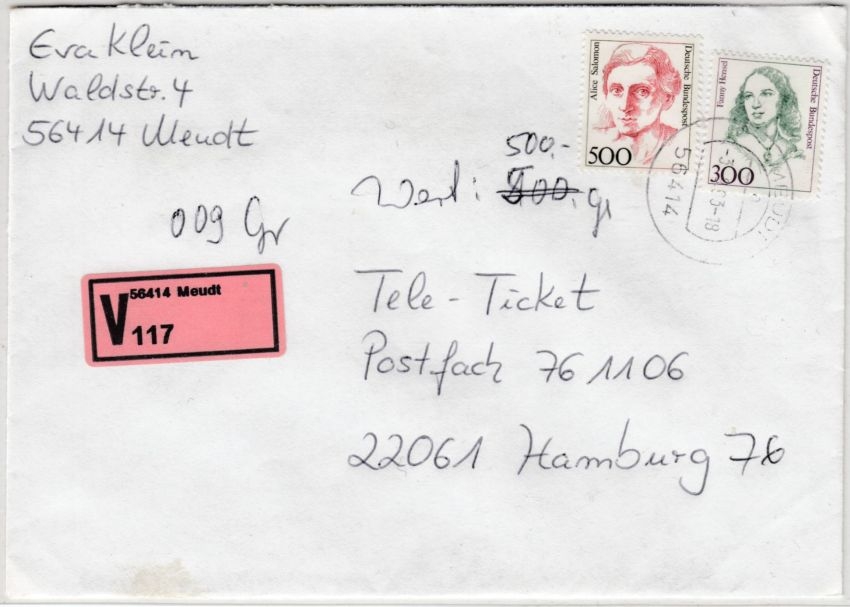 Eva Klein
Waldstr. 4
56414 Meudt
Alice Salomon
Deutsche Bundespost
500
Fanny Hensel
Deutsche Bundespost
300
56414
93-18
500.-
Wert: 500.
009 Gr
V 56414 Meudt
117
Tele-Ticket
Postfach 761106
22061 Hamburg 76